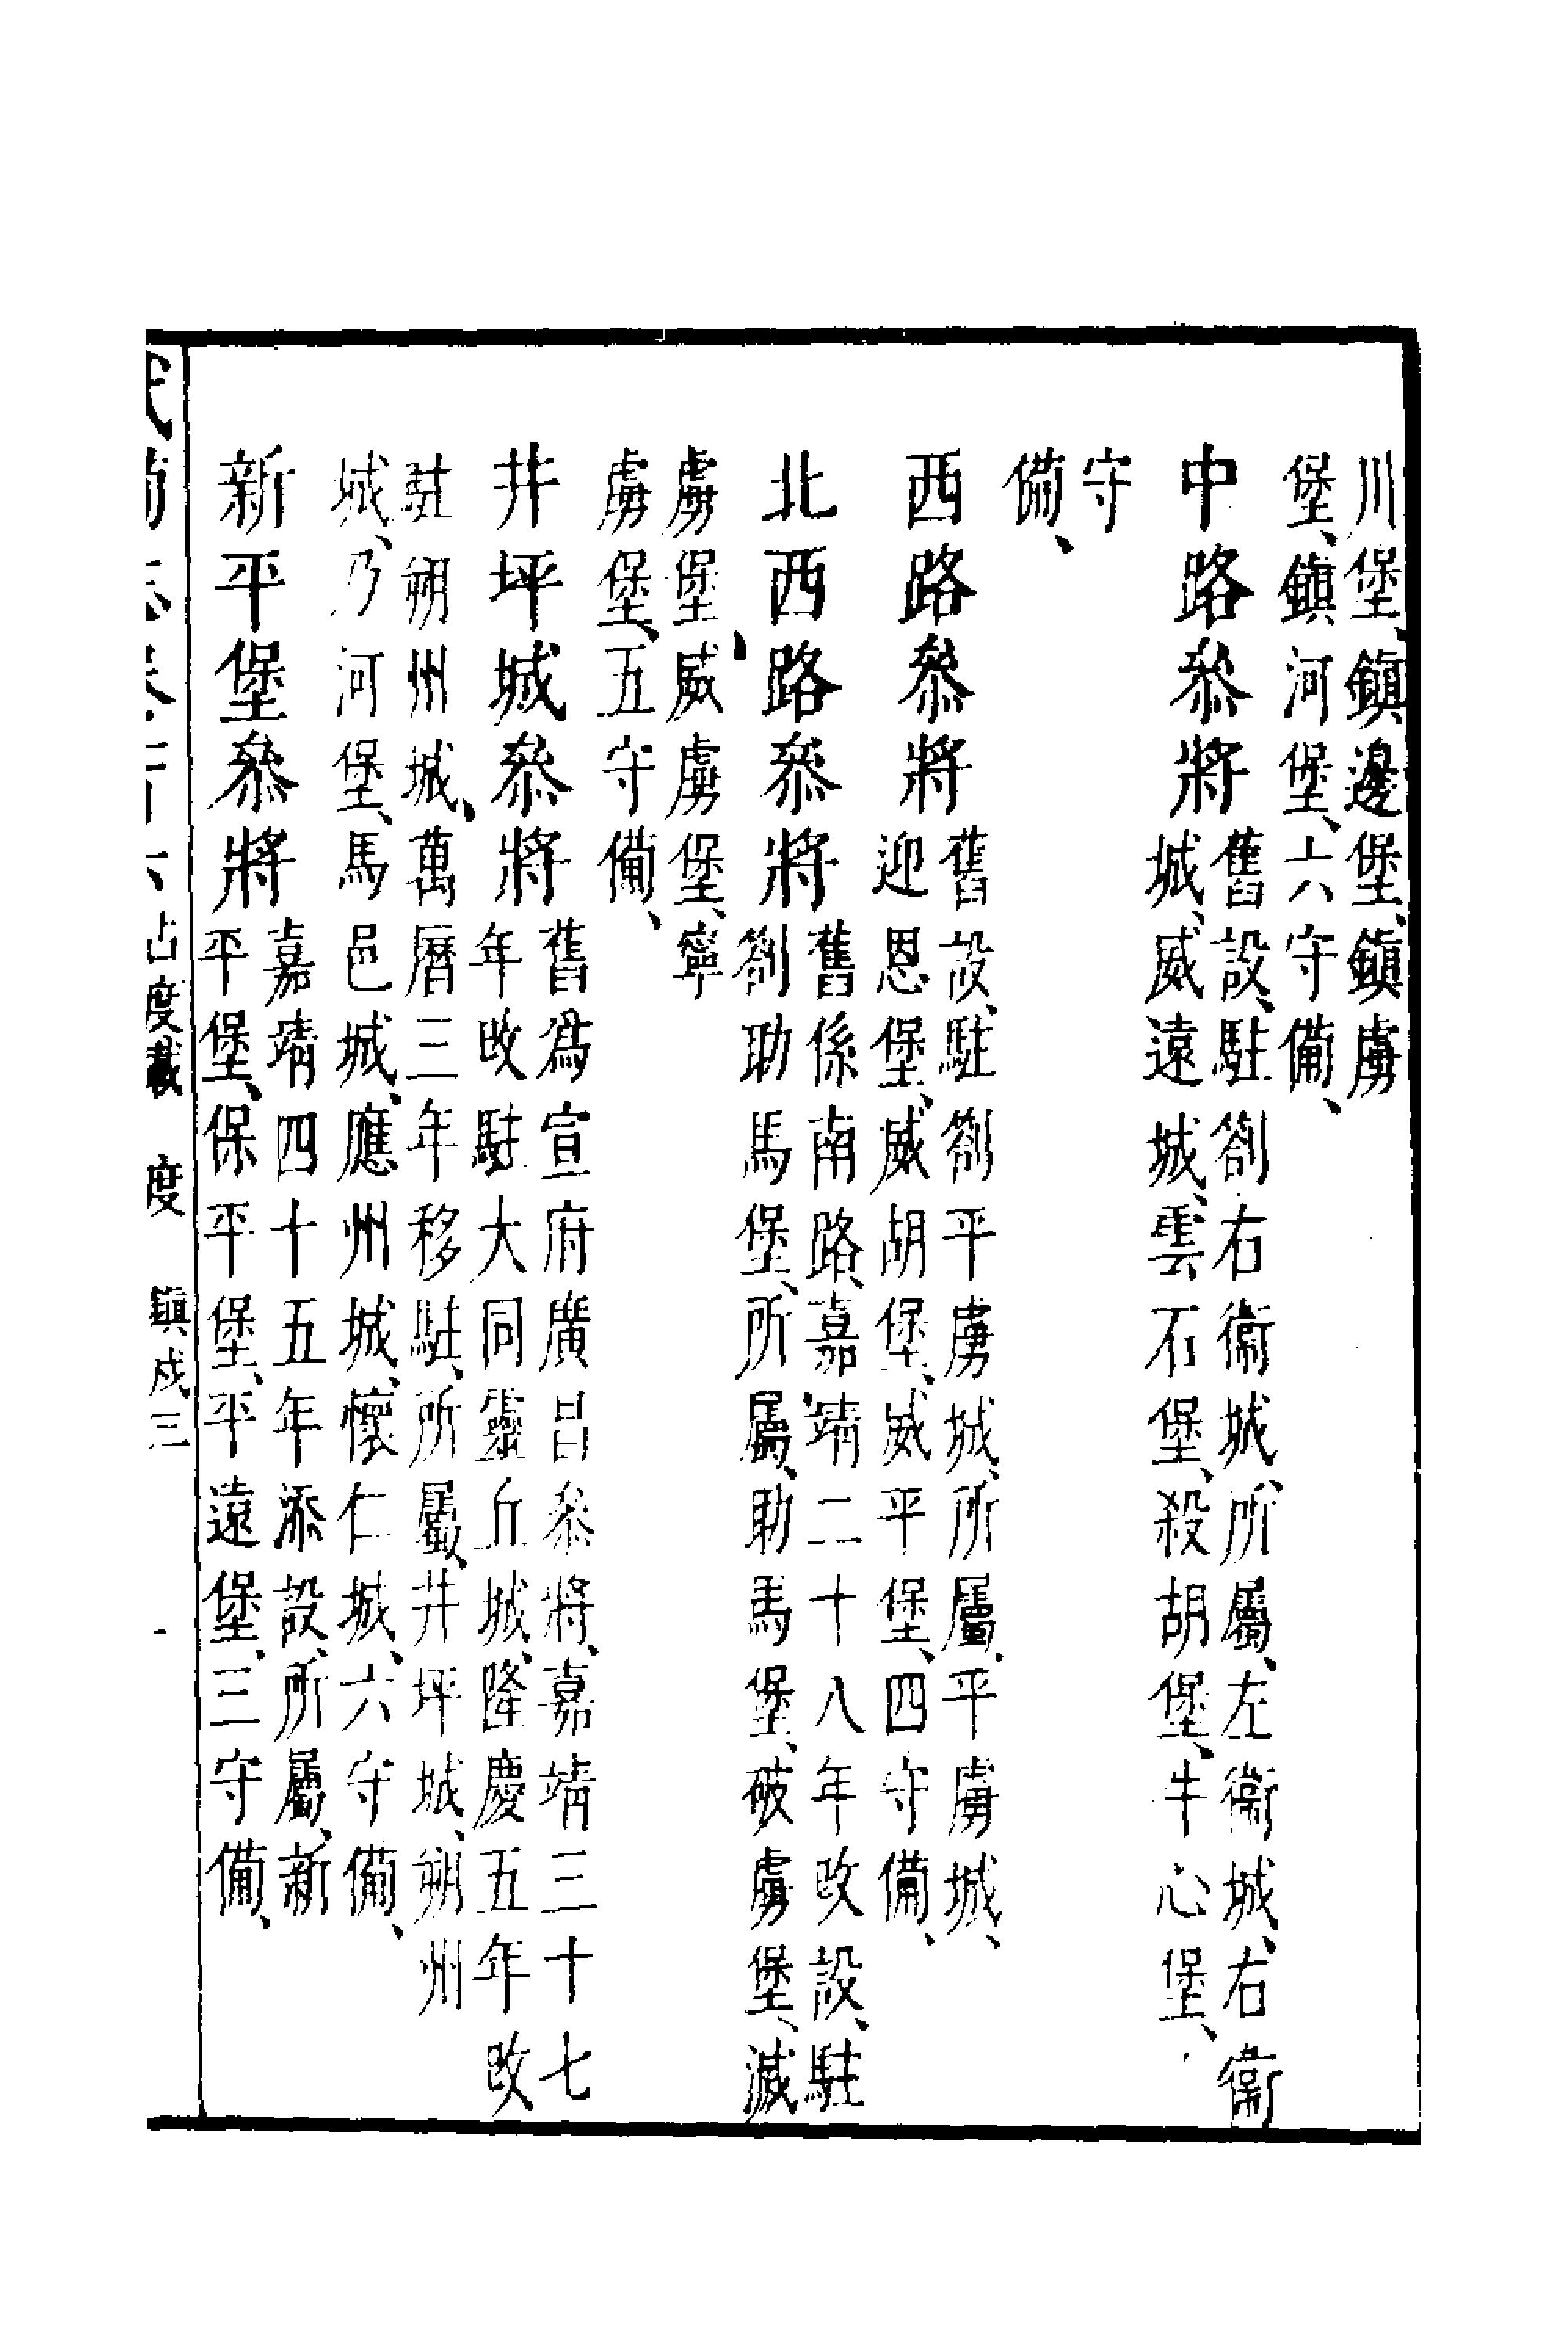 川堡、鎮邊堡、鎮虜
堡、鎮河堡、六守備、
中路叅將
舊設、駐劄右衞城、所屬、左衞城、右衞
城、威遠城、雲石堡、殺胡堡、牛心堡、
守
備、
西路叅將
舊設、駐劄平虜城、所屬、平虜城、
迎恩堡、威胡堡、威平堡、四守備、
北西路叅將
舊係南路、嘉靖二十八年改設、駐
劄助馬堡、所屬、助馬堡、破虜堡、滅
虜堡、威虜堡、寧
虜堡、五守備、
井坪城叅將
舊爲宣府廣昌叅將、嘉靖三十七
年改駐大同靈丘城、隆慶五年改
駐朔州城、萬曆三年移駐、所屬、井坪城、朔州
城、乃河堡、馬邑城、應州城、懷仁城、六守備、
新平堡叅將
嘉靖四十五年添設、所屬、新
平堡、保平堡、平遠堡、三守備、
占度載 度 鎮戍三